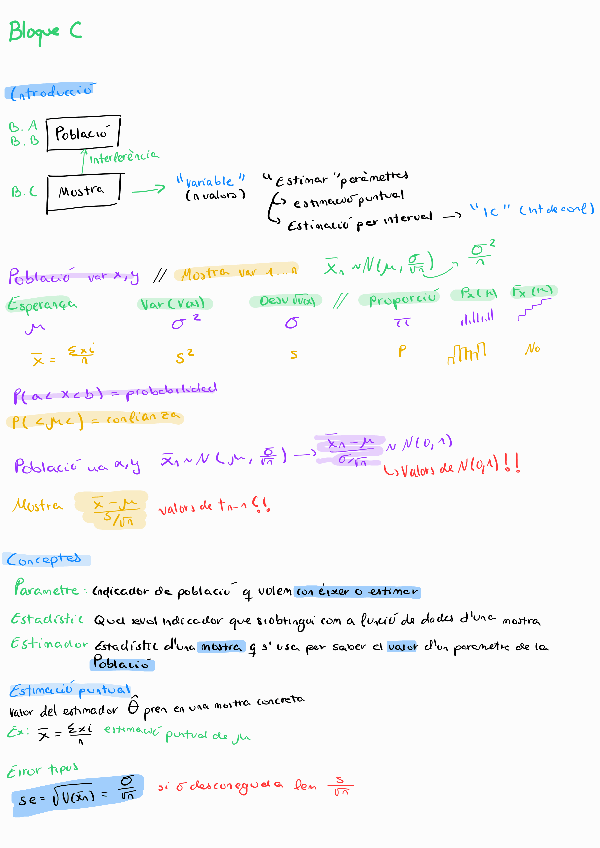 Bloque C
Introducció
B. A
B. B
Població
↑ Interferència
B. C Mostra → "variable" (n valors)
"Estimar" paràmetres
↳ estimació puntual
↳ Estimació per interval → "IC" (Int de conf)
Població var x, y // Mostra var 1...n x̄n ~ N(μ, σ/√n) σ²/n
Esperança Var (V(x)) Desv (√V(x)) // proporció Px(k) Fx(k)
μ σ² σ π
x̄ = Σxi/n s² s P No
P(a < x < b) = probabilidad
P( < μ < ) = confianza
Població va x, y x̄n ~ N(μ, σ/√n) → (x̄n - μ)/(σ/√n) ~ N(0,1)
↳ Valors de N(0,1)!!
Mostra (x̄ - μ)/(s/√n) valors de tn-1 !!
Conceptes
Parametre: Indicador de població q volem conèixer o estimar
Estadístic Qualsevol indicador que s'obtingui com a funció de dades d'una mostra
Estimador Estadístic d'una mostra q s'usa per saber el valor d'un parametre de la
Població
Estimació puntual
Valor del estimador θ̂ pren en una mostra concreta
Ex: x̄ = Σxi/n estimació puntual de μ
Error tipus
se = √V(x̄n) = σ/√n si σ desconeguda fem s/√n